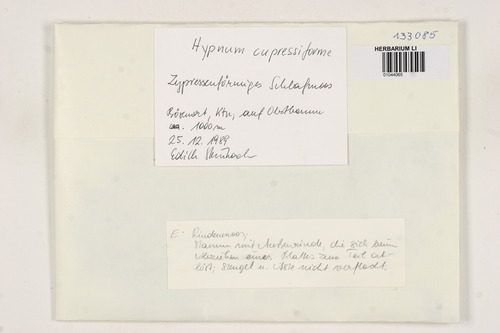 133085
HERBARIUM LI
01044065
Hypnum cupressiforme
Zypressenförmiges Schlafmoos
Ktn, auf Obstbaum
ca. 1000m
25. 12. 1989
Edith
E: Rindenmoos;
Stamm mit Außenrinde, die sich beim
eines Blattes zum Teil
löst; Stengel u. Äste nicht verflacht.